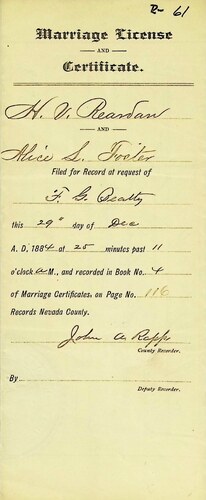 R- 61
Marriage License
AND
Certificate.
H. V. Reardan
AND
Alice L. Foster
Filed for Record at request of
F. G. Beatty
this 29" day of Dec
A. D. 1884 at 25 minutes past 11
o'clock A M., and recorded in Book No. 4
of Marriage Certificates, on Page No. 116
Records Nevada County.
John A Rapp
County Recorder.
By
Deputy Recorder.